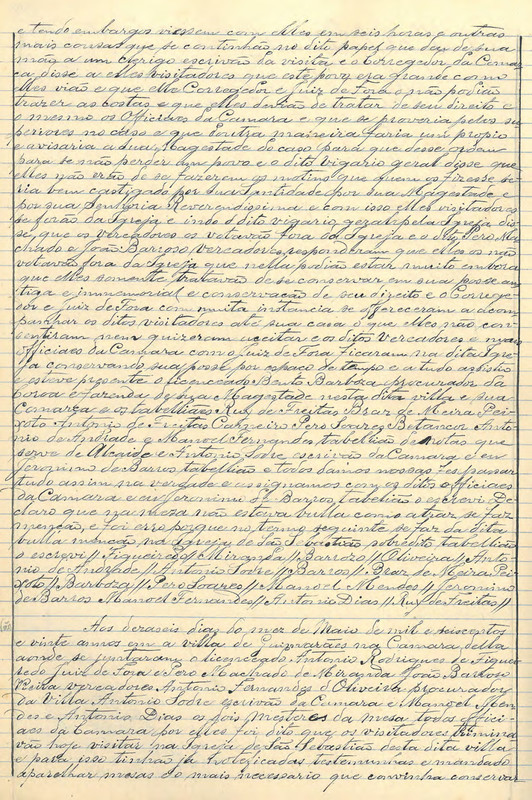 e tendo embargos viessem com elles em seis horas e outras
mais cousas que se continhão no dito papel que deu de sua
mão a um clerigo escrivão da visita e o Corregedor da Comar
ca disse a elles visitadores que este povo era grande como
elles vião e que elle Corregedor e Juiz de Fora o não podião
trazer as costas e que elles devião de tratar de seu direito e
o mesmo os Officiaes da Camara e que se proveria pelos su
periores no caso e que doutra maneira faria um proprio
e avisaria a sua Magestade do caso para que desse ordem
para se não perder um povo e o dito vigario geral disse que
elles não erão de se fazerem os motins que quem os fizesse se
ria bem castigado por sua Santidade por sua Magestade e
por sua Senhoria Reverendissima e com isso elles visitadores
se forão da Igreja e indo o dito vigario geral pela Igreja dis
se que os vereadores os votavão fora da Igreja e o dito Pero Ma
chado e João Barroso vereadores responderam que elles os não
votavão fora da Igreja que nella podião estar muito embora
que elles somente tratavão de se conservar em sua posse an
tiga e immemorial e conservação de seu direito e o Correge
dor e juiz de fora com muita instancia se offereceram a acom
panhar os ditos visitadores até sua casa o que elles não con
sentiram nem quizeram acceitar e os ditos vereadores e mais
officiaes da Camara com o Juiz de Fora ficaram na dita Igre
ja conservando sua posse por espaço de tempo e a tudo assistio
e esteve presente o licenceado Bento Barboza procurador da
Coroa e fazenda de sua Magestade nesta dita villa e sua
Comarca e os tabelliães Ruy de Freitas Braz de Meira Pei
xoto Antonio de Freitas Carneiro Pero Soares Betancor Anto
nio de Andrade e Manoel Fernandes tabellião de notas que
serve de Alcaide e Antonio Sodre escrivão da Camara e eu
Jeronimo de Barros tabellião e todos damos nossas fes passar
tudo assim na verdade e assignamos com os ditos officiaes
da Camara e eu Jeronimo de Barros tabelião o escrevi De
claro que na mesa não estava bulla como atraz se faz
menção e foi erro porque no termo seguinte se faz da dita
bulla menção na Igreja de São Sebastião sobredito tabellião
o escrevi // Figueiredo // Miranda // Barrozo // Oliveira // Anto
nio de Andrade // Antonio Sodre // Barros // Braz de Meira Pei
xoto // Barboza // Pero Soares // Manoel Mendes // Jeronimo
de Barros Manoel Fernandes // Antonio Dias // Ruy de Freitas //
Aos dezaseis dias do mez de Maio de mil e seiscentos
e vinte annos em a villa de Guimarães na Camara della
aonde se juntaram o licenceado Antonio Rodrigues e Figuei
redo Juiz de Fora e Pero Machado de Miranda João Barroso
Paiva vereadores Antonio Fernandes d'Oliveira procurador
da Villa Antonio Sodre escrivão da Camara e Manoel Men
des e Antonio Dias os dois mesteres da mesa todos offici
aes da Camara por elles foi dito que os visitadores
vão hoje visitar na Igreja de São Sebastião desta dita villa
e para isso tinhão já notificadas testemunhas e mandado
aparelhar mesas e o mais necessario que convinha conservar